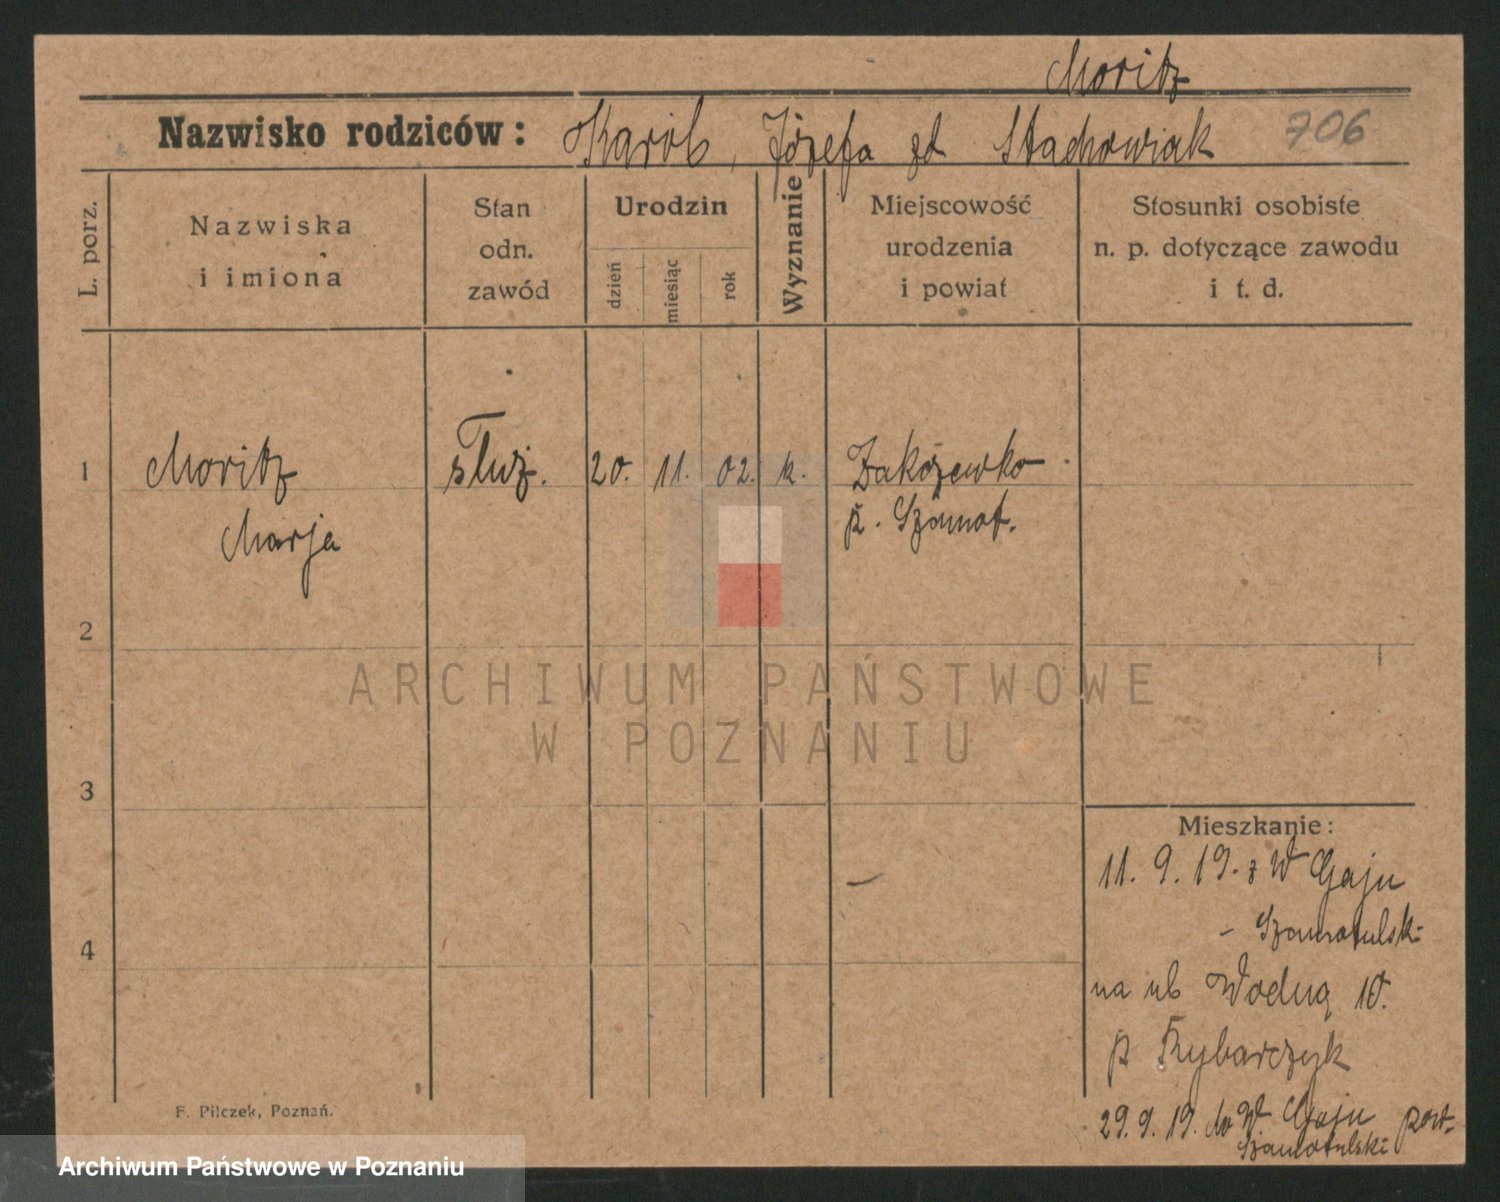 Moritz
Nazwisko rodziców: Karól, Józefa zd Stachowiak 706
L. porz.
Nazwiska
i imiona
Stan
odn.
zawód
Urodzin
dzień
miesiąc
rok
Wyznanie
Miejscowość
urodzenia
i powiat
Stosunki osobiste
n. p. dotyczące zawodu
i t. d.
1 Moritz służ. 20. 11. 02. k. Zakrzewko
Marja p. Szamot.
2
ARCHIWUM PAŃSTWOWE
W POZNANIU
3
Mieszkanie:
11. 9. 19. z W Gaju
- Szamotulski
4
na ul Wodną 10.
p Rybarczyk
29. 9. 19. do W Gaju pow.
Szamotulski
F. Pilczek, Poznań.
Archiwum Państwowe w Poznaniu